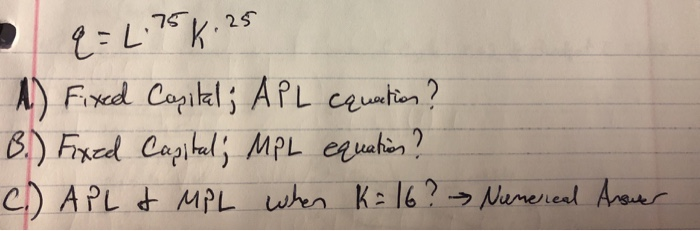 q = L^.75 K^.25
A) Fixed Capital; APL equation?
B.) Fixed Capital; MPL equation?
C.) APL & MPL when K = 16? → Numerical Answer